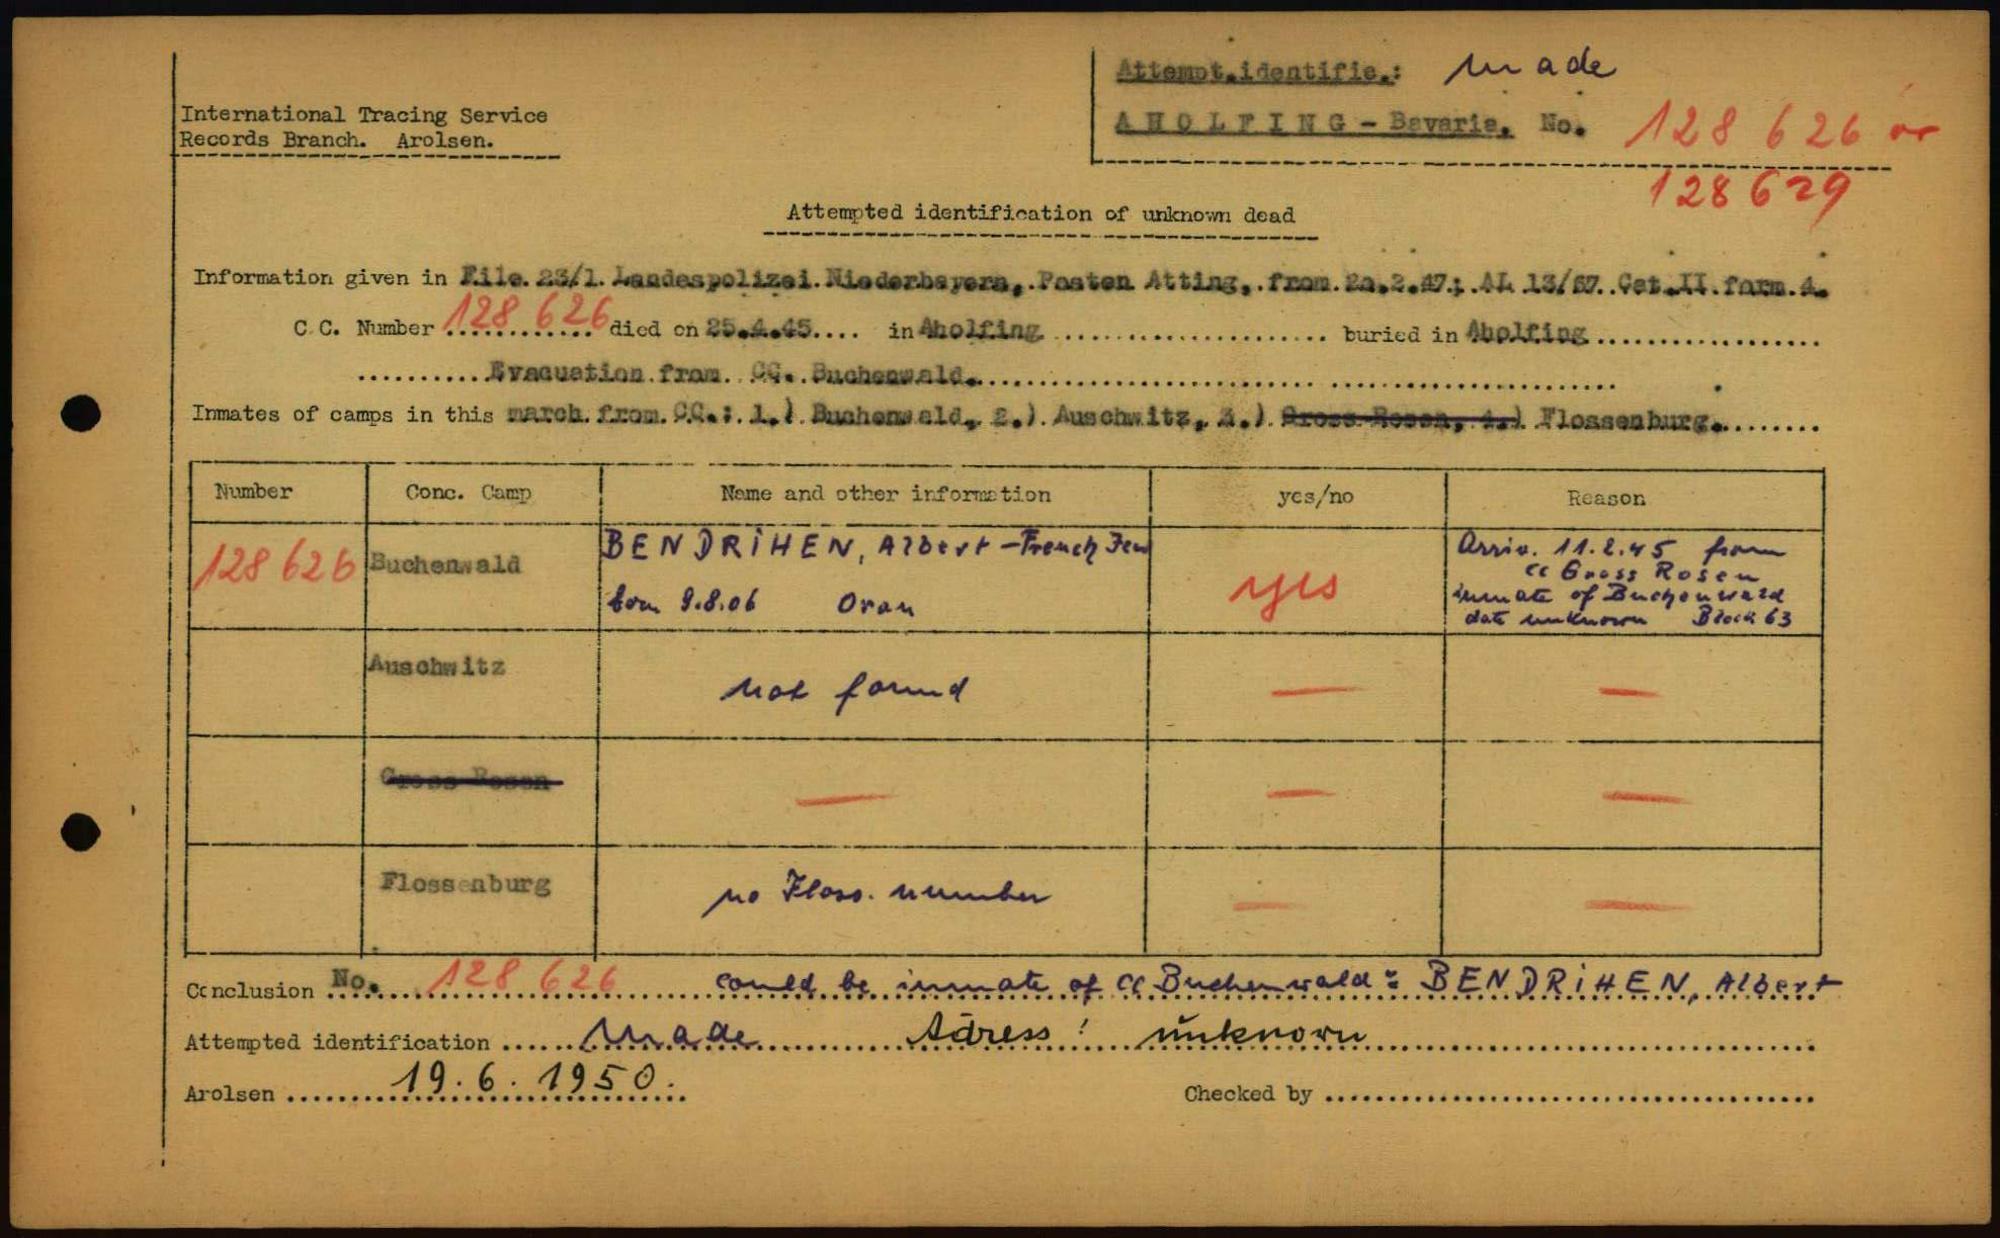 Attempt.identifie.: made
International Tracing Service
Records Branch. Arolsen.
AHOLFING - Bavaria. No. 128 626 or
128 629
Attempted identification of unknown dead
Information given in File. 23/1. Landespolizei. Niederbayern, Posten Atting, from. 2.47; AL 13/67. Cat. II. farm. 4.
C.C. Number 128 626 died on 25.4.45 in Aholfing buried in Aholfing
Evacuation from CC. Buchenwald.
Inmates of camps in this march from CC.: 1.) Buchenwald, 2.) Auschwitz, 3.) Gross Rosen, 4.) Flossenburg.
Number Conc. Camp Name and other information yes/no Reason
128 626 Buchenwald BENDRIHEN, Albert - French Jew yes Arriv. 11.2.45 from
cc Gross Rosen
born 9.8.06 Oran inmate of Buchenwald
date unknown Block 63
Auschwitz not found — —
Gross Rosen — — —
Flossenburg no Floss. number — —
Conclusion No. 128 626 could be inmate of CC Buchenwald: BENDRIHEN, Albert
Attempted identification made Adress: unknown
Arolsen 19.6.1950. Checked by